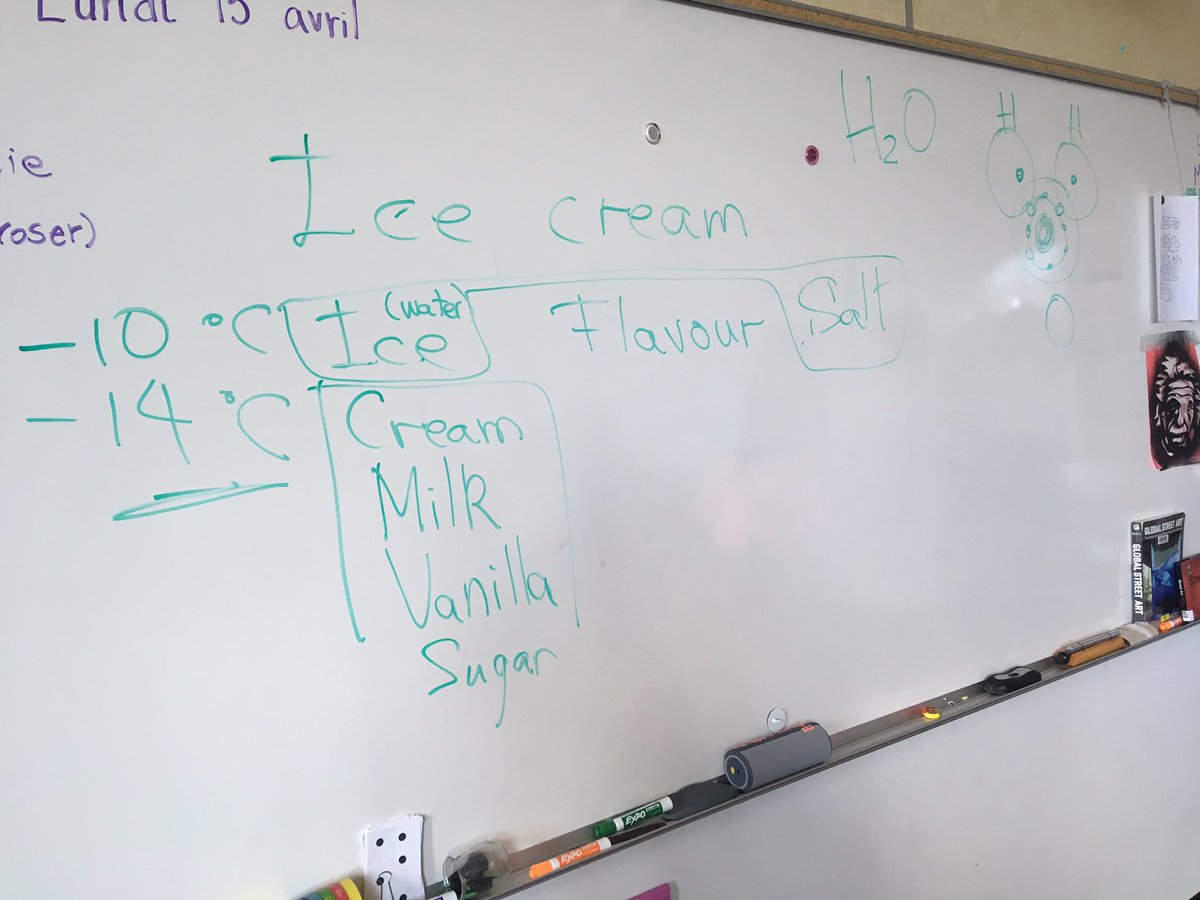 Lundi 15 avril
H₂O
H H
Ice cream
roser)
-10 °C Ice (water) Flavour Salt
-14 °C Cream
O
Milk
Vanilla
Sugar
GLOBAL STREET ART
GLOBAL STREET ART
EXPO
EXPO